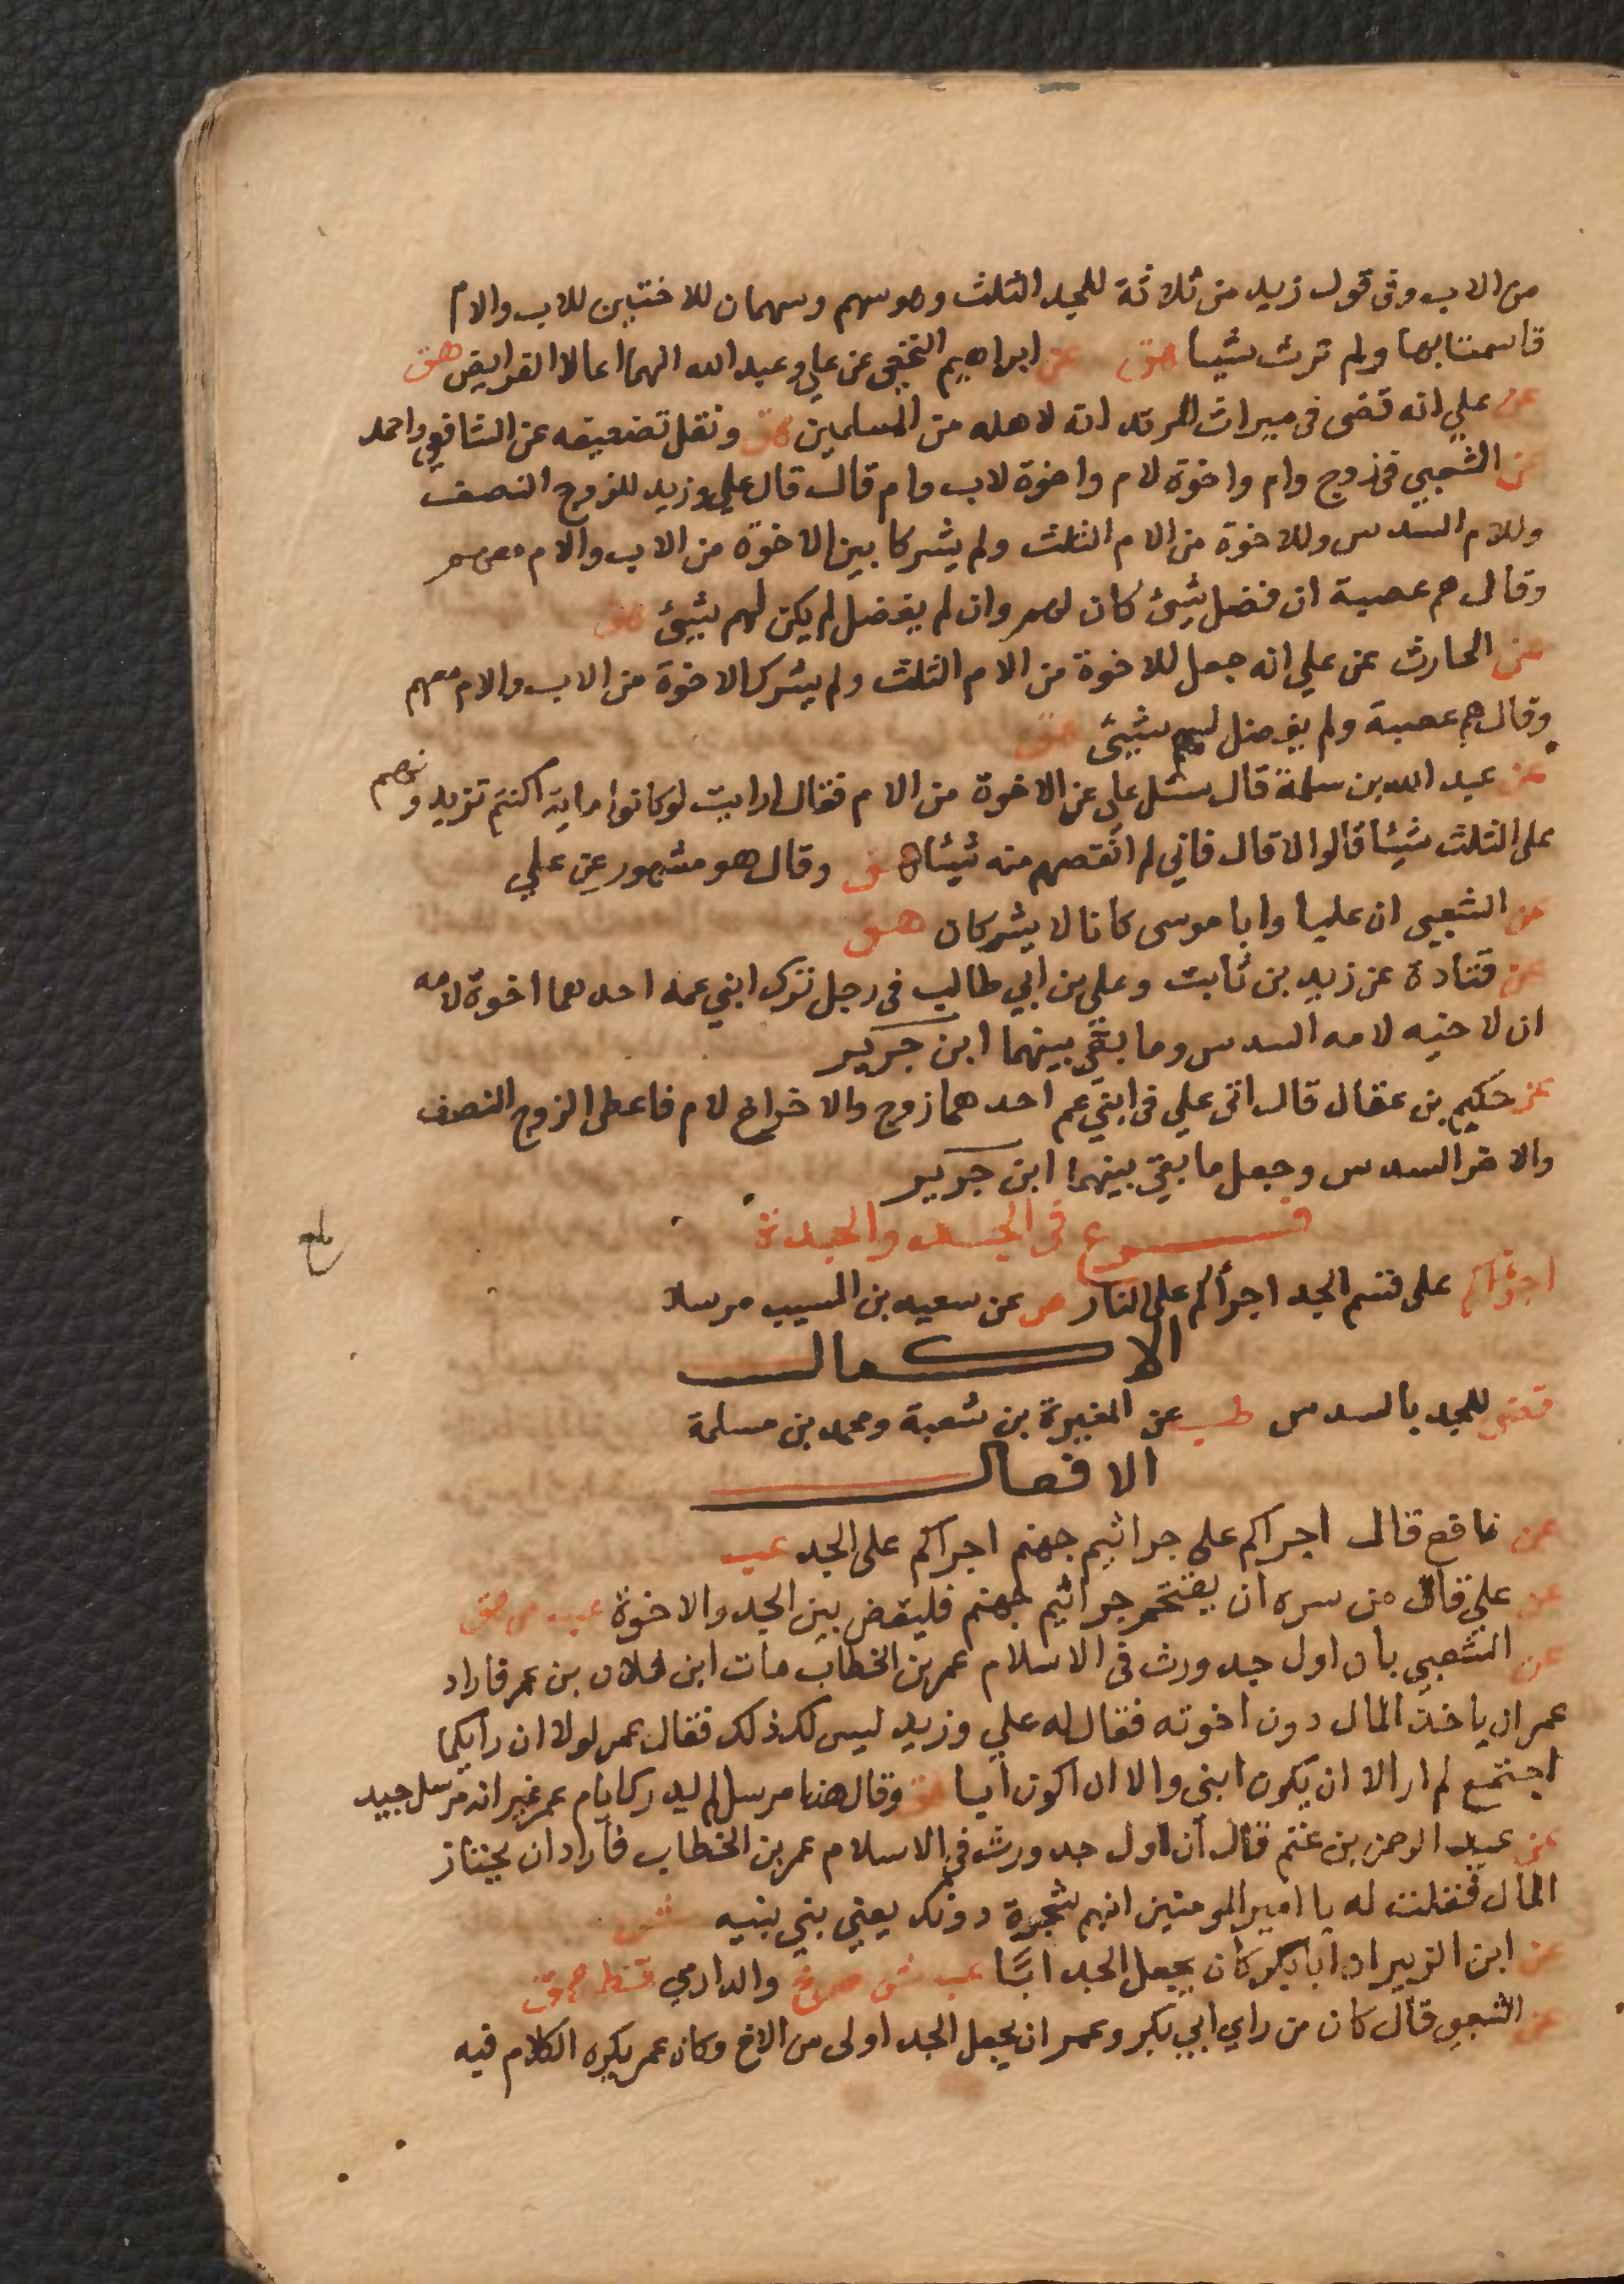 من الاب وفى قول زيد من ثلاثة للجد الثلث وهو سهم وسهمان للاختين للاب والام
قاسمتا بها ولم ترث شيا هق عن ابراهيم النخعى عن علي وعبد الله انهما اعالا الفرايض هق
عن علي انه قضى فى ميراث المرتد انه لاهله من المسلمين هق ونقل تضعيفه عن الشافعي واحمد
عن الشعبي فى زوج وام واخوة لام واخوة لاب وام قال قال علي وزيد للزوج النصف
وللام السدس وللاخوة من الام الثلث ولم يشركا بين الاخوة من الاب والام معهم
وقال هم عصبة ان فضل شئ كان لهم وان لم يفضل لم يكن لهم شئ هق
عن الحارث عن علي انه جعل للاخوة من الام الثلث ولم يشرك الاخوة من الاب والام معهم
وقال هم عصبة ولم يفضل لهم شئ هق
عن عبد الله بن سلمة قال سئل علي عن الاخوة من الام فقال ارايت لو كانوا ماية اكنتم تزيدونهم
على الثلث شيئا قالوا لا قال فاني لم انقصهم منه شيئا هق وقال هو مشهور عن علي
عن الشعبي ان عليا وابا موسى كانا لا يشركان هق
عن قتادة عن زيد بن ثابت وعلي بن ابي طالب فى رجل ترك ابني عمه احدهما اخوه لامه
ان لاخيه لامه السدس وما بقي بينهما ابن جرير
عن حكيم بن عقال قال اتى علي فى ابني عم احدهما زوج والاخر اخ لام فاعطى الزوج النصف
والاخر السدس وجعل ما بقي بينهما ابن جرير
فرع فى الجد والجدة
اجرؤاكم على قسم الجد اجرأكم على النار ص عن سعيد بن المسيب مرسلا
الاكمال
قضى للجد بالسدس طب عن المغيرة بن شعبة ومحمد بن مسلمة
الافعال
عن نافع قال اجراكم على جراثيم جهنم اجراكم على الجد عب
عن علي قال من سره ان يقتحم جراثيم جهنم فليقض بين الجد والاخوة عب ص هق
عن الشعبي بان اول جد ورث فى الاسلام عمر بن الخطاب مات ابن فلان بن عمر فاراد
عمر ان ياخذ المال دون اخوته فقال له علي وزيد ليس لك ذلك فقال عمر لولا ان رايكما
اجتمع لم ار الا ان يكون ابنى والا ان اكون ابا هق وقال هذا مرسل لم يدرك ايام عمر غير انه مرسل جيد
عن عبد الرحمن بن غنم قال ان اول جد ورث فى الاسلام عمر بن الخطاب فاراد ان يحتاز
المال فقلت له يا امير المومنين انهم شجرة دونك يعني بني بنيه ش
عن ابن الزبير ان ابا بكر كان يجعل الجد ابًا عب ش ص خ والدارمي قط هق
عن الشعبي قال كان من راي ابي بكر وعمر ان يجعل الجد اولى من الاخ وكان عمر يكره الكلام فيه